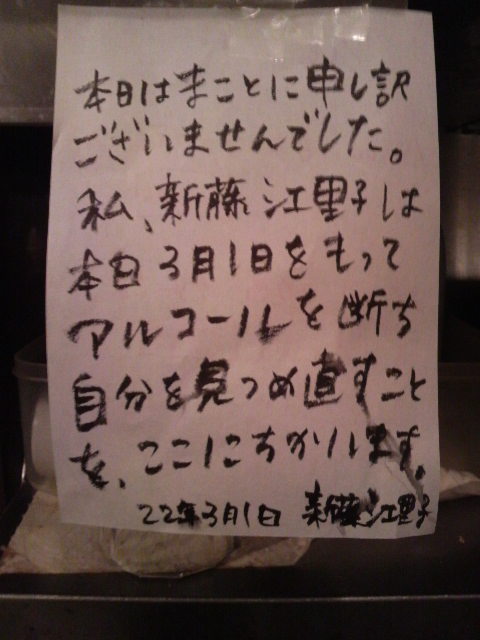 本日はまことに申し訳
ございませんでした。
私、新藤江里子は
本日3月1日をもって
アルコールを断ち
自分を見つめ直すこと
を、ここにちかいます。
22年3月1日 新藤江里子